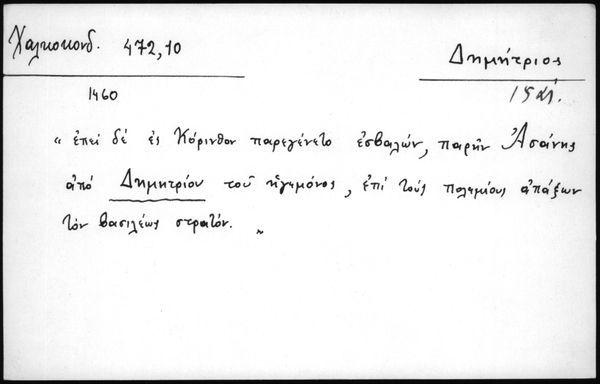 Χαλκοκονδ. 472,10
Δημήτριος
1460
“ ἐπεί δέ ἐς Κόρινθον παρεγένετο ἐσβαλών, παρῆν Ἀσάνης
ἀπό Δημητρίου τοῦ ἡγεμόνος, ἐπί τούς πολεμίους ἀπάξων
τόν βασιλέως στρατόν. „